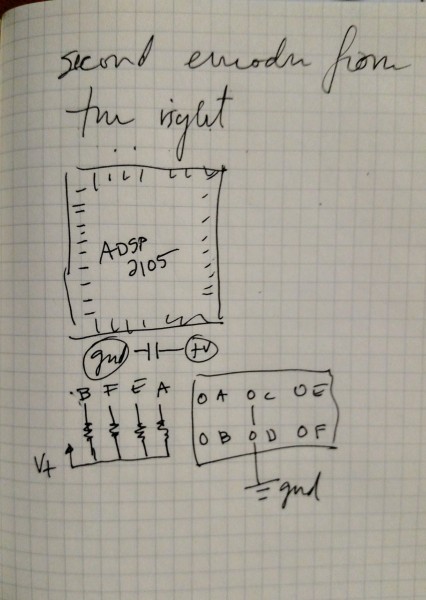 second encoder from
the right
ADSP
2105
gnd +V
B F E A
V+
A C E
B D F
gnd